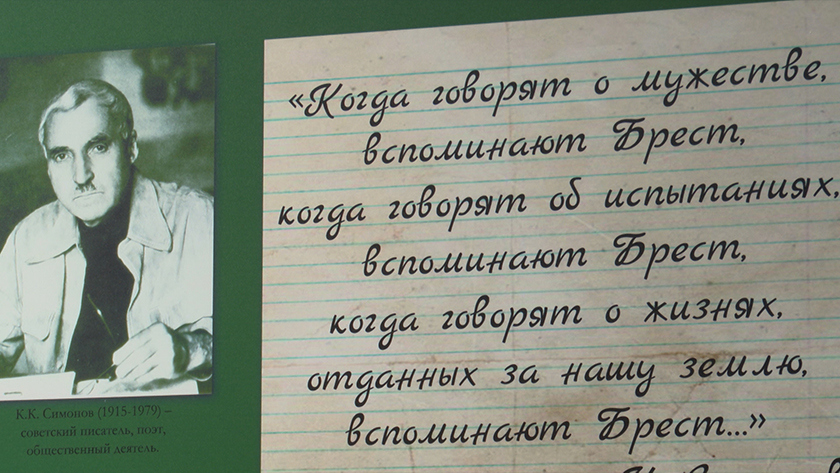 «Когда говорят о мужестве,
вспоминают Брест,
когда говорят об испытаниях,
вспоминают Брест,
когда говорят о жизнях,
отданных за нашу землю,
вспоминают Брест...»
К.К. Симонов (1915-1979) –
советский писатель, поэт,
общественный деятель.